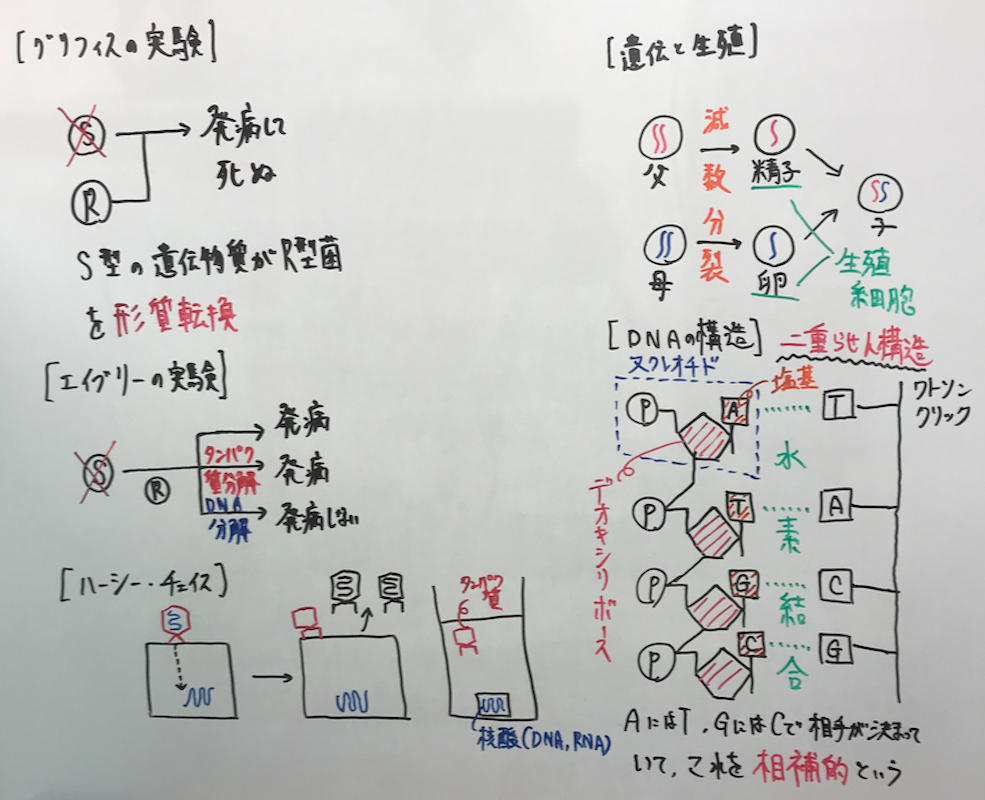 [グリフィスの実験]
S
R
発病して
死ぬ
S型の遺伝物質がR型菌
を形質転換
[エイブリーの実験]
S
R
発病
タンパク
質分解
発病
DNA
分解
発病しない
[ハーシー・チェイス]
タンパク
質
核酸(DNA,RNA)
[遺伝と生殖]
父
減
数
精子
母
分
裂
卵
子
生殖
細胞
[DNAの構造]
二重らせん構造
ヌクレオチド
塩基
ワトソン
クリック
P
A
T
水
デオキシリボース
P
T
A
素
P
G
C
結
P
C
G
合
AにはT,GにはCで相手が決まって
いて,これを相補的という